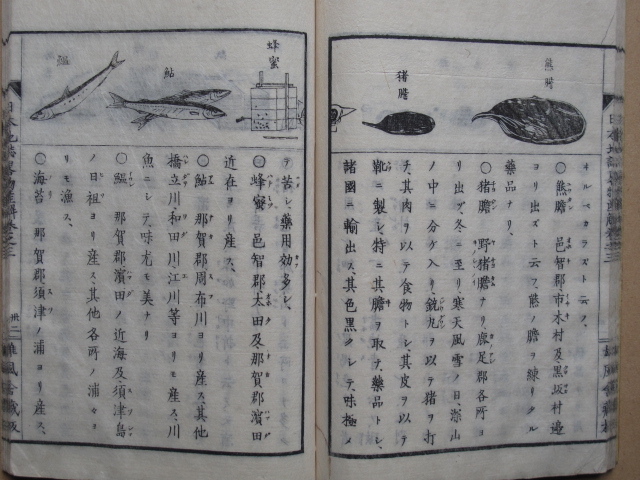 熊膽
猪膽
キルベカラズト云フ、
○熊膽 邑智郡市木村及黒坂村邉
ヨリ出ズト云フ、藍ノ膽ヲ練リタル
藥品ナリ、
○猪膽 野猪膽ナリ、鹿足郡各所ヨ
リ出ズ、冬ニ至リ寒天風雪ノ日、深山
ノ中ニ分ケ入リ、銃丸ヲ以テ猪ヲ打
チ、其肉ヲ以テ食物トシ、其皮ヲ以テ
靴ニ製シ、特ニ其膽ヲ取テ、藥品トシ、
諸國ニ輸出ス、其色黒クシテ、味極メ
蜂蜜
鮎
鰛
テ苦シ、藥用効多シ、
○蜂蜜 邑智郡太田及那賀郡濱田
近在ヨリ産ス、
○鮎 那賀郡周布川ヨリ産ス、其他
橋立川和田川江川等ヨリモ産ス、川
魚ニシテ味尤モ美ナリ
○鰛 那賀郡濱田ノ近海及須津島
ノ日祖ヨリ産ス、其他各所ノ浦々ヨ
リモ漁ス、
○海苔 那賀郡須津ノ浦ヨリ産ス、